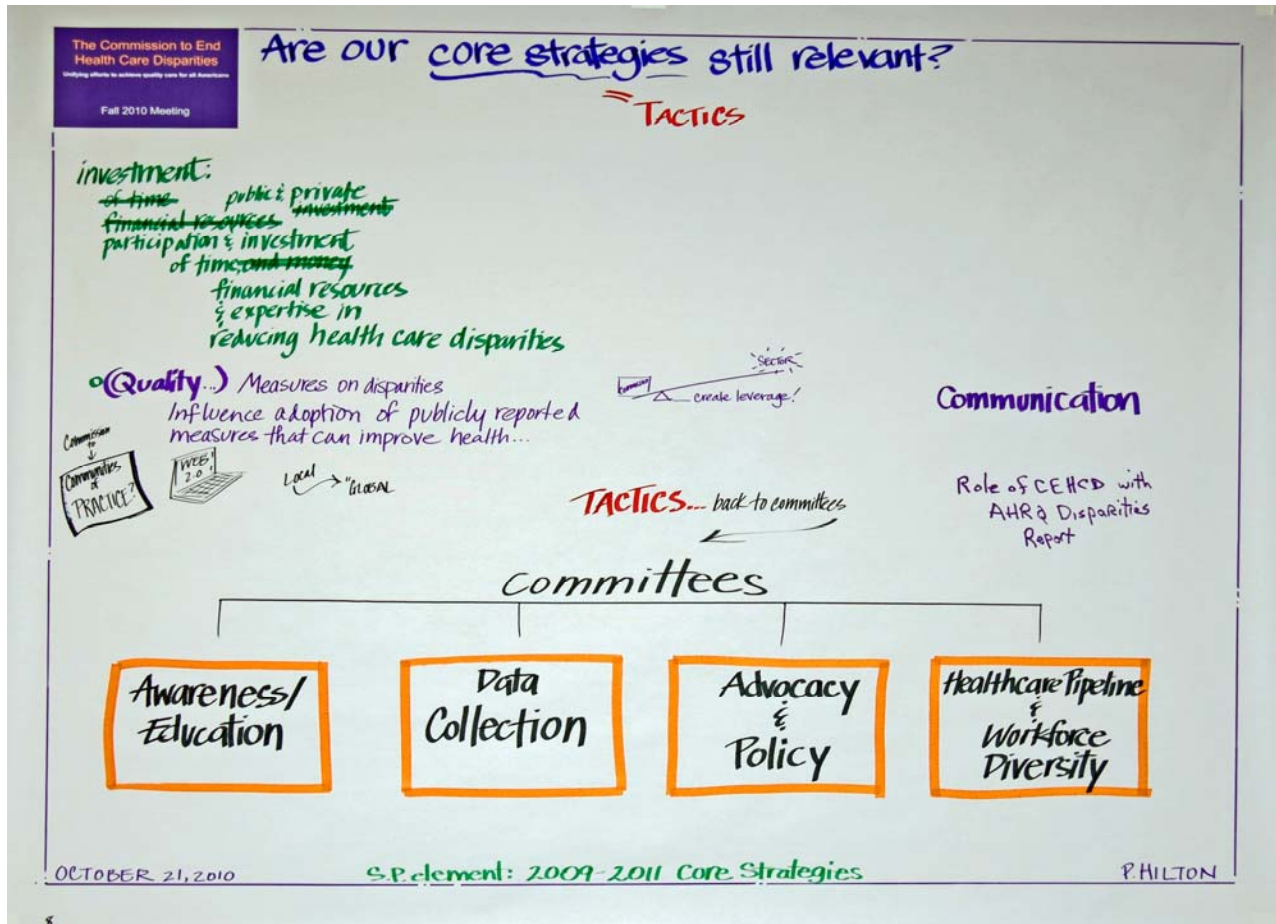 The Commission to End
Health Care Disparities
Unifying efforts to achieve quality care for all Americans
Fall 2010 Meeting
Are our core strategies still relevant?
= TACTICS
investment:
of time public & private
financial resources investment
participation & investment
of time, and money
financial resources
& expertise in
reducing health care disparities
(Quality...) Measures on disparities
Influence adoption of publicly reported
measures that can improve health...
SECTOR
create leverage!
Communication
Commission
to
Communities
of
PRACTICE?
WEB
2.0
Local
"GLOBAL
TACTICS... back to committees
Role of CEHCD with
AHRQ Disparities
Report
committees
Awareness/
Education
Data
Collection
Advocacy
&
Policy
Healthcare Pipeline
&
Workforce
Diversity
OCTOBER 21, 2010
S.P. element: 2009-2011 Core Strategies
P. HILTON
8